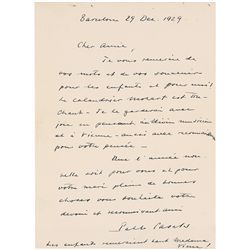 Barcelone 29 Dec. 1929
Cher Amie,
Je vous remercie de
vos mots et de vos souvenirs
pour les enfants et pour moi!
Le calendrier Mozart est tou-
chant. Je le garderai avec
joie en pensant
et à Vienne - aussi avec reconnais
pour votre pensée.
Que l'année nou-
velle soit pour vous et pour
votre mari pleine de bonnes
choses vous souhaite votre
devoué et reconnaissant ami
Pablo Casals
Les enfants remercient tout